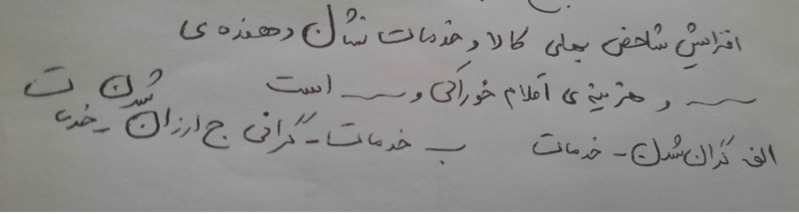 افزایش شاخص بهای کالا و خدمات نشان دهنده ی
ــــ و هزینه ی اقلام خوراکی و ــــ است
الف گران شدن - خدمات ب خدمات - گرانی ج ارزان شدن - خدمات